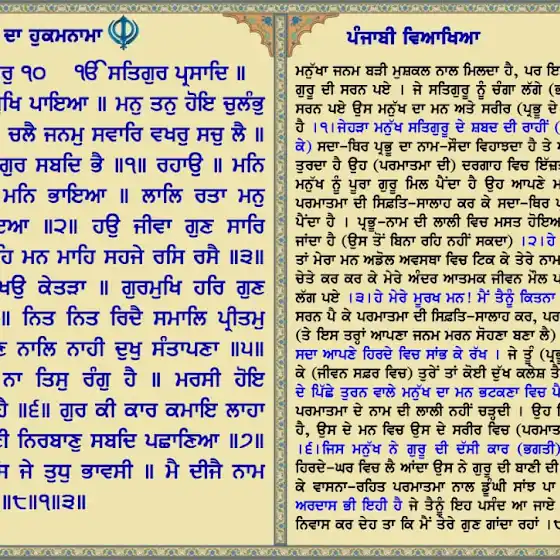 ਦਾ ਹੁਕਮਨਾਮਾ
ਰੁ ੧੦ ੴ ਸਤਿਗੁਰ ਪ੍ਰਸਾਦਿ ॥
ਖਿ ਪਾਇਆ ॥ ਮਨੁ ਤਨੁ ਹੋਇ ਚੁਲੰਭੁ
ਚਲੈ ਜਨਮੁ ਸਵਾਰਿ ਵਖਰੁ ਸਚੁ ਲੈ ॥
ਗੁਰ ਸਬਦਿ ਭੈ ॥੧॥ ਰਹਾਉ ॥ ਮਨਿ
ਮਨਿ ਭਾਇਆ ॥ ਲਾਲਿ ਰਤਾ ਮਨੁ
ਇਆ ॥੨॥ ਹਉ ਜੀਵਾ ਗੁਣ ਸਾਰਿ
ਹਿ ਮਨ ਮਾਹਿ ਸਹਜੇ ਰਸਿ ਰਸੈ ॥੩॥
ਖਉ ਕੇਤੜਾ ॥ ਗੁਰਮੁਖਿ ਹਰਿ ਗੁਣ
॥ ਨਿਤ ਨਿਤ ਰਿਦੈ ਸਮਾਲਿ ਪ੍ਰੀਤਮੁ
ਣ ਨਾਲਿ ਨਾਹੀ ਦੁਖੁ ਸੰਤਾਪਣਾ ॥੫॥
ਨਾ ਤਿਸੁ ਰੰਗੁ ਹੈ ॥ ਮਰਸੀ ਹੋਇ
ਹੈ ॥੬॥ ਗੁਰ ਕੀ ਕਾਰ ਕਮਾਇ ਲਾਹਾ
ਣੀ ਨਿਰਬਾਣੁ ਸਬਦਿ ਪਛਾਣਿਆ ॥੭॥
ਸ ਜੇ ਤੁਧੁ ਭਾਵਸੀ ॥ ਮੈ ਦੀਜੈ ਨਾਮ
॥੮॥੧॥੩॥
ਪੰਜਾਬੀ ਵਿਆਖਿਆ
ਮਨੁੱਖਾ ਜਨਮ ਬੜੀ ਮੁਸ਼ਕਲ ਨਾਲ ਮਿਲਦਾ ਹੈ, ਪਰ ਇ
ਗੁਰੂ ਦੀ ਸਰਨ ਪਏ । ਜੇ ਸਤਿਗੁਰੂ ਨੂੰ ਚੰਗਾ ਲੱਗੇ (ਭ
ਸਰਨ ਪਏ ਉਸ ਮਨੁੱਖ ਦਾ ਮਨ ਅਤੇ ਸਰੀਰ (ਪ੍ਰਭੂ ਦੇ
ਹੈ ।੧।ਜੇਹੜਾ ਮਨੁੱਖ ਸਤਿਗੁਰੂ ਦੇ ਸ਼ਬਦ ਦੀ ਰਾਹੀਂ (
ਕੇ) ਸਦਾ-ਥਿਰ ਪ੍ਰਭੂ ਦਾ ਨਾਮ-ਸੌਦਾ ਵਿਹਾਝਦਾ ਹੈ ਤੇ
ਤੁਰਦਾ ਹੈ ਉਹ (ਪਰਮਾਤਮਾ ਦੀ) ਦਰਗਾਹ ਵਿਚ ਇੱਜ਼ਤ
ਮਨੁੱਖ ਨੂੰ ਪੂਰਾ ਗੁਰੂ ਮਿਲ ਪੈਂਦਾ ਹੈ ਉਹ ਆਪਣੇ ਮ
ਪਰਮਾਤਮਾ ਦੀ ਸਿਫ਼ਤਿ-ਸਾਲਾਹ ਕਰ ਕੇ ਸਦਾ-ਥਿਰ ਪ
ਪੈਂਦਾ ਹੈ । ਪ੍ਰਭੂ-ਨਾਮ ਦੀ ਲਾਲੀ ਵਿਚ ਮਸਤ ਹੋਇਆ
ਜਾਂਦਾ ਹੈ (ਉਸ ਤੋਂ ਬਿਨਾ ਰਹਿ ਨਹੀਂ ਸਕਦਾ) ।੨।ਹੇ
ਤਾਂ ਮੇਰਾ ਮਨ ਅਡੋਲ ਅਵਸਥਾ ਵਿਚ ਟਿਕ ਕੇ ਤੇਰੇ ਨਾਮ
ਚੇਤੇ ਕਰ ਕਰ ਕੇ ਮੇਰੇ ਅੰਦਰ ਆਤਮਕ ਜੀਵਨ ਮੌਲ ਪ
ਲੱਗ ਪਏ ।੩।ਹੇ ਮੇਰੇ ਮੂਰਖ ਮਨ! ਮੈਂ ਤੈਨੂੰ ਕਿਤਨਾ
ਸਰਨ ਪੈ ਕੇ ਪਰਮਾਤਮਾ ਦੀ ਸਿਫ਼ਤਿ-ਸਾਲਾਹ ਕਰ, ਪਰ
(ਤੇ ਇਸ ਤਰ੍ਹਾਂ ਆਪਣਾ ਜਨਮ ਮਰਨ ਸੋਹਣਾ ਬਣਾ ਲੈ)
ਸਦਾ ਆਪਣੇ ਹਿਰਦੇ ਵਿਚ ਸਾਂਭ ਕੇ ਰੱਖ । ਜੇ ਤੂੰ (ਪ੍ਰਭੂ
ਕੇ (ਜੀਵਨ ਸਫ਼ਰ ਵਿਚ) ਤੁਰੇਂ ਤਾਂ ਕੋਈ ਦੁੱਖ ਕਲੇਸ਼ ਤੈ
ਦੇ ਪਿੱਛੇ ਤੁਰਨ ਵਾਲੇ ਮਨੁੱਖ ਦਾ ਮਨ ਭਟਕਣਾ ਵਿਚ ਪੈ
ਪਰਮਾਤਮਾ ਦੇ ਨਾਮ ਦੀ ਲਾਲੀ ਨਹੀਂ ਚੜ੍ਹਦੀ । ਉਹ
ਹੈ, ਉਸ ਦੇ ਮਨ ਵਿਚ ਉਸ ਦੇ ਸਰੀਰ ਵਿਚ (ਪਰਮਾਤਮਾ
।੬।ਜਿਸ ਮਨੁੱਖ ਨੇ ਗੁਰੂ ਦੀ ਦੱਸੀ ਕਾਰ (ਭਗਤੀ)
ਹਿਰਦੇ-ਘਰ ਵਿਚ ਲੈ ਆਂਦਾ ਉਸ ਨੇ ਗੁਰੂ ਦੀ ਬਾਣੀ ਦੀ
ਕੇ ਵਾਸਨਾ-ਰਹਿਤ ਪਰਮਾਤਮਾ ਨਾਲ ਡੂੰਘੀ ਸਾਂਝ ਪਾ
ਅਰਦਾਸ ਭੀ ਇਹੀ ਹੈ ਜੇ ਤੈਨੂੰ ਇਹ ਪਸੰਦ ਆ ਜਾਏ
ਨਿਵਾਸ ਕਰ ਦੇਹ ਤਾ ਕਿ ਮੈਂ ਤੇਰੇ ਗੁਣ ਗਾਂਦਾ ਰਹਾਂ ।੮